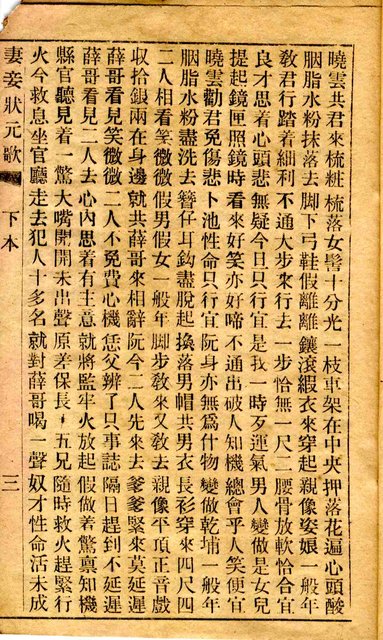 曉雲共君來梳粧 梳落女髻十分光 一枝車架在中央 押落花遍心頭酸
胭脂水粉抹落去 脚下弓鞋假離離 鑲滾緞衣來穿起 親像姿娘一般年
敎君行踏着細利 不通大步來行去 一步恰無一尺二 腰骨放軟恰合宜
良才思着心頭悲 無疑今日只行宜 是我一時歹運氣 男人變做是女兒
提起鏡匣照鏡時 看來好笑亦好啼 不通出破人知機 總會乎人笑便宜
曉雲勸君免傷悲 卜池性命只行宜 阮身亦無為什物 變做乾埔一般年
胭脂水粉盡洗去 簪仔耳鈎盡脫起 換落男帽共男衣 長衫穿來四尺四
二人相看笑微微 假男假女一般年 脚步敎來又敎去 親像平頂正音戲
收拾銀兩在身邊 就共薛哥來相辭 阮今二人先來去 爹爹緊來莫延遲
薛哥看見笑微微 二人不免費心機 恁父辨了只事誌 隔日趕到不延遲
薛哥看見二人去 心內思着有主意 就將監牢火放起 假做着驚禀知機
縣官聽見着一驚 大嘴開開未出聲 原差保長十五兄 隨時救火趕緊行
火今救息坐官廳 走去犯人十多名 就對薛哥喝一聲 奴才性命活未成
妻妾狀元歌 下本 三